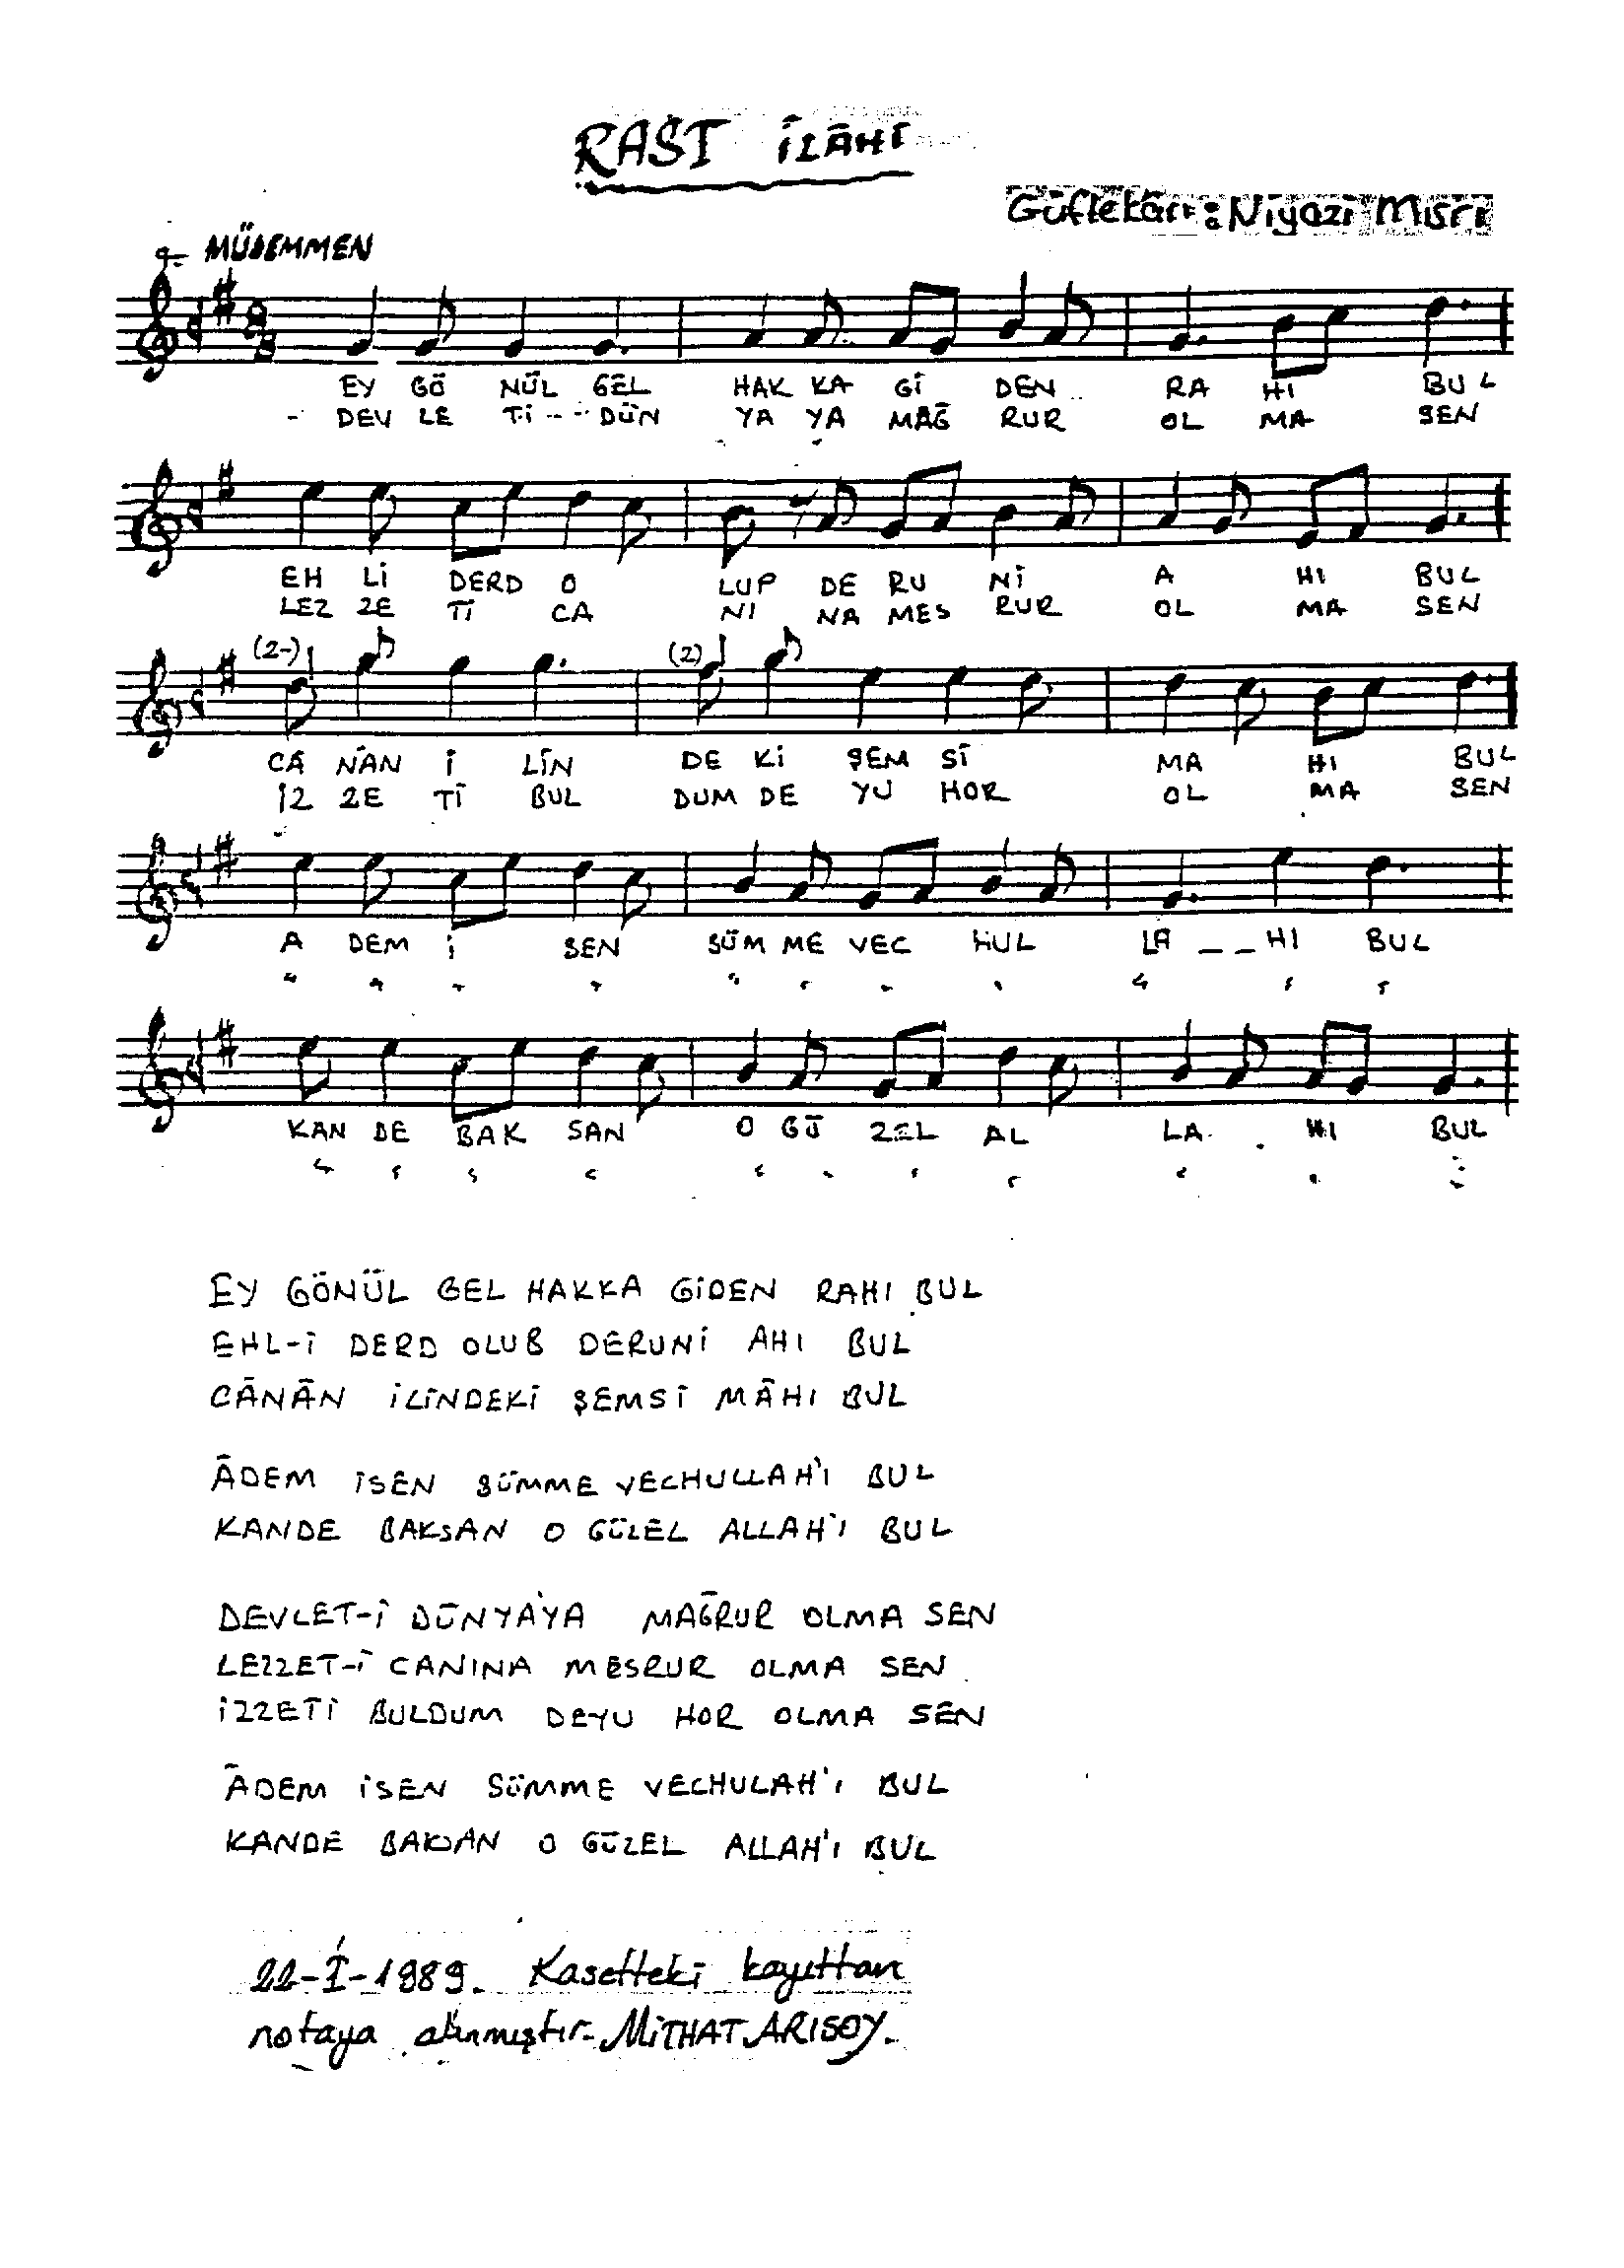 RAST İLÂHİ
Güftekârı: Niyazi Mısri
MÜSEMMEN
EY GÖ NÜL GEL HAK KA Gİ DEN RA HI BUL
DEV LE Tİ DÜN YA YA MAĞ RUR OL MA SEN
EH Lİ DERD O LUP DE RU Nİ A HI BUL
LEZ ZE Tİ CA NI NA MES RUR OL MA SEN
(2-) (2)
CÂ NÂN İ LİN DE Kİ ŞEM Sİ MA HI BUL
İZ ZE Tİ BUL DUM DE YU HOR OL MA SEN
A DEM İ SEN SÜM ME VEC HUL LA _ _ HI BUL
" " " " " " " " " " "
KAN DE BAK SAN O GÜ ZEL AL LA HI BUL
" " " " " " " " " " "
EY GÖNÜL GEL HAKKA GİDEN RAHI BUL
EHL-İ DERD OLUB DERUNİ AHI BUL
CÂNÂN İLİNDEKİ ŞEMSİ MÂHI BUL
ÂDEM İSEN SÜMME VECHULLAH'I BUL
KANDE BAKSAN O GÜZEL ALLAH'I BUL
DEVLET-İ DÜNYA'YA MAĞRUR OLMA SEN
LEZZET-İ CANINA MESRUR OLMA SEN
İZZETİ BULDUM DEYU HOR OLMA SEN
ÂDEM İSEN SÜMME VECHULAH'I BUL
KANDE BAKSAN O GÜZEL ALLAH'I BUL
22-I-1989. Kasetteki kayıttan
notaya alınmıştır- MİTHAT ARISOY.